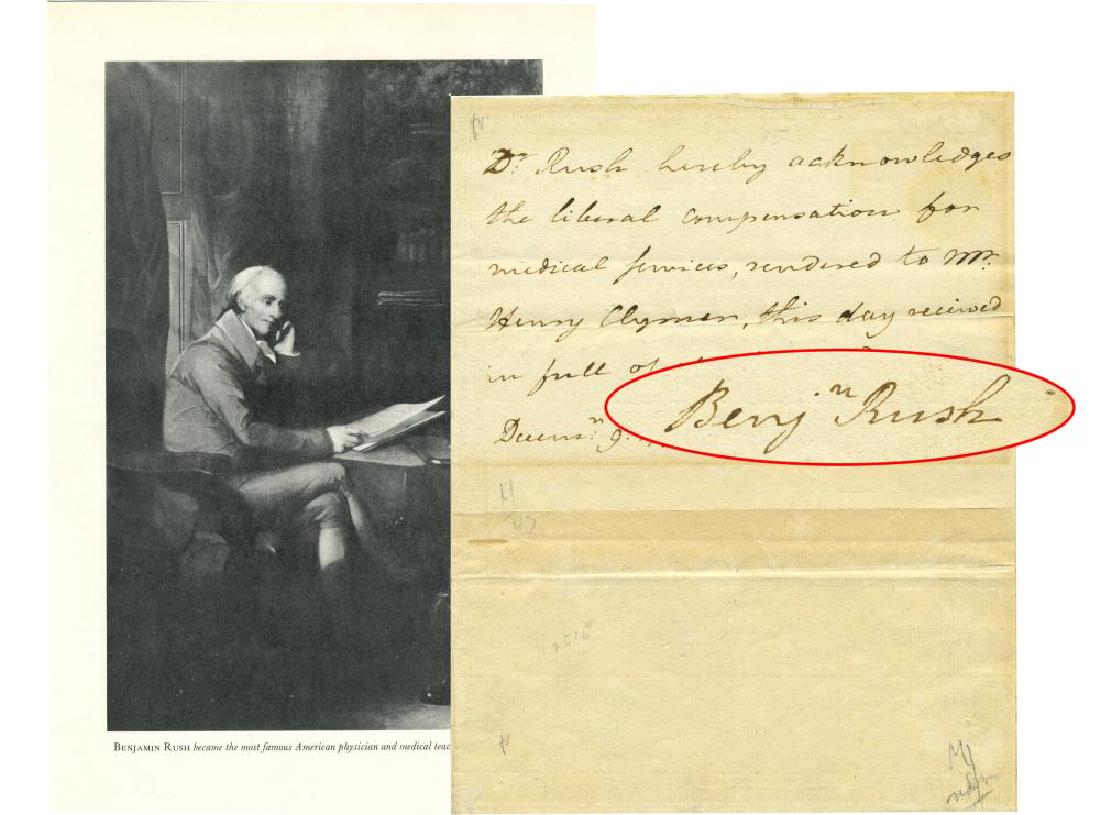 Dr. Rush hereby acknowledges
the liberal compensation for
medical services, rendered to Mr.
Henry Clymer, this day received
in full of
Benjn Rush
Decemr. 9.
BENJAMIN RUSH became the most famous American physician and medical teac